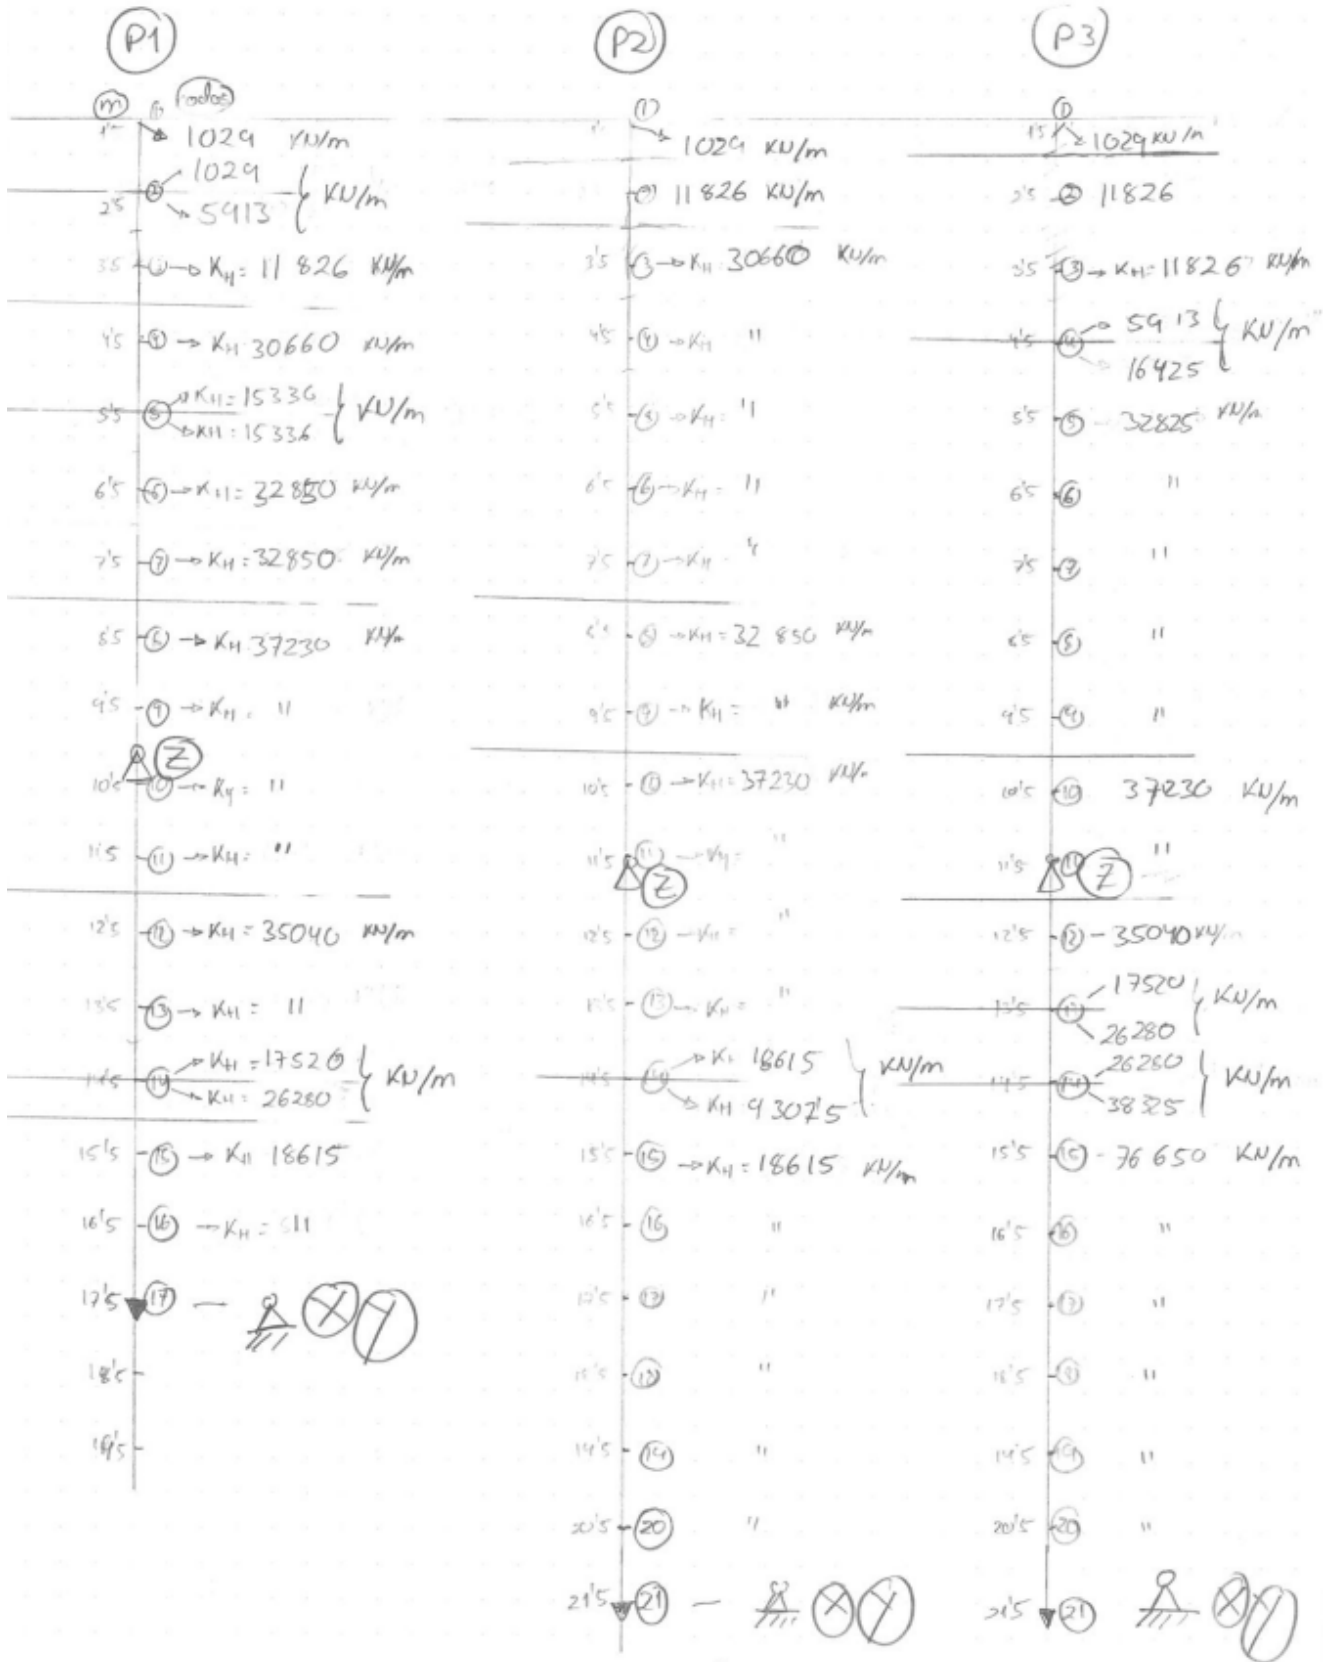 P1
m
nodos
1
1'5
1029 KN/m
2'5
2
1029
5913
KN/m
3'5
3
→ KH = 11826 KN/m
4'5
4
→ KH 30660 KN/m
5'5
5
→ KH = 15336
→ KH = 15336
KN/m
6'5
6
→ KH = 32850 KN/m
7'5
7
→ KH = 32850 KN/m
8'5
→ KH 37230 KN/m
9'5
9
→ KH = "
Z
10'5
10
"
11'5
11
→ KH = "
12'5
12
→ KH = 35040 KN/m
13'5
13
→ KH = "
14'5
14
→ KH = 17520
→ KH = 26280
KN/m
15'5
15
→ KH 18615
16'5
16
→ KH = "
17'5
17
—
X
Y
18'5
19'5
P2
1
1029 KN/m
2
11826 KN/m
3'5
3
→ KH = 30660 KN/m
4'5
4
→ KH "
5'5
→ KH = "
6'5
6
→ KH = "
7'5
7
→ KH "
8'5
→ KH = 32850 KN/m
9'5
9
→ KH = " KN/m
10'5
10
→ KH = 37230 KN/m
11'5
11
"
Z
12'5
12
→ KH = "
13'5
13
→ KH = "
14'5
14
→ KH 18615
→ KH 9307'5
KN/m
15'5
15
→ KH = 18615 KN/m
16'5
16
"
17'5
17
"
18'5
18
"
"
20'5
20
"
21'5
21
—
X
Y
P3
1
1'5
1029 KN/m
2'5
2
11826
3'5
3
→ KH = 11826 KN/m
4'5
4
5913
16425
KN/m
5'5
5
32825 KN/m
6'5
6
"
7'5
7
"
8'5
8
"
9'5
9
"
10'5
10
37230 KN/m
11'5
11
"
Z
12'5
12
- 35040 KN/m
13'5
13
17520
26280
KN/m
14'5
14
26280
38325
KN/m
15'5
15
- 76650 KN/m
16'5
16
"
17'5
17
"
18'5
18
"
19
"
20'5
20
"
21'5
21
X
Y